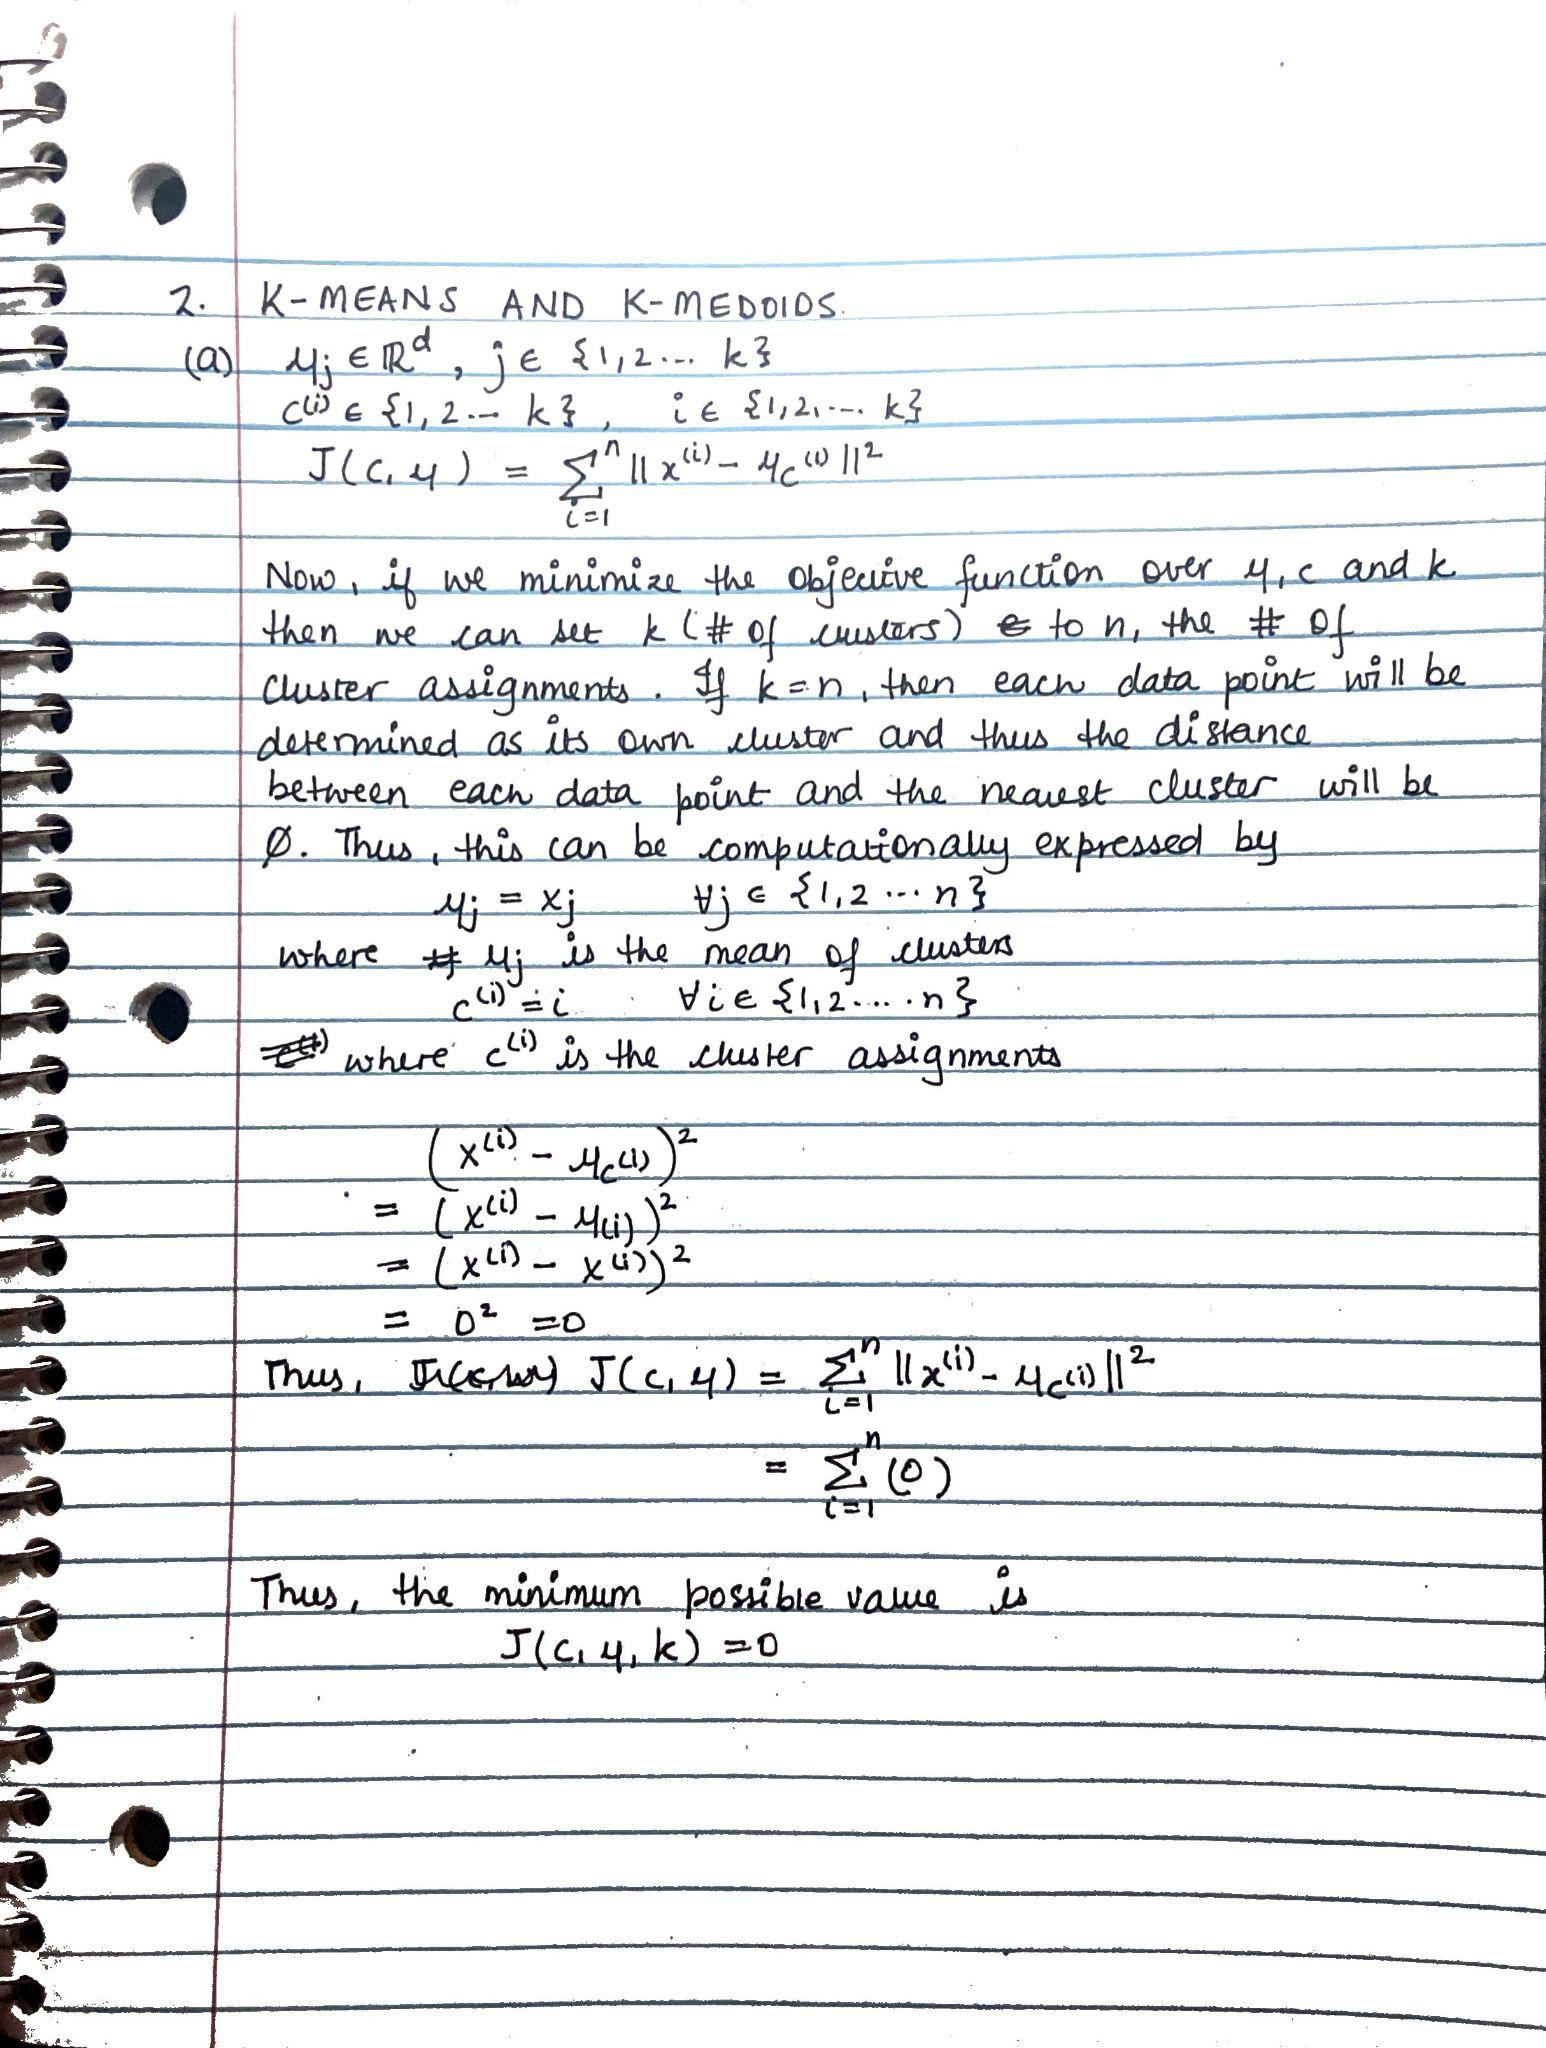 2. K-MEANS AND K-MEDOIDS.
(a) μj ∈ ℝ^d, j ∈ {1,2... k}
c^(i) ∈ {1, 2... k}, i ∈ {1,2,.... k}
J(c, μ) = Σ_{i=1}^n || x^(i) - μ_c^(i) ||^2
Now, if we minimize the objective function over μ, c and k
then we can set k (# of clusters) to n, the # of
cluster assignments. If k=n, then each data point will be
determined as its own cluster and thus the distance
between each data point and the nearest cluster will be
Ø. Thus, this can be computationally expressed by
μj = xj ∀j ∈ {1,2 ... n}
where μj is the mean of clusters
c^(i) = i ∀i ∈ {1,2.....n}
where c^(i) is the cluster assignments
(x^(i) - μ_c^(i))^2
= (x^(i) - μ_(i))^2
= (x^(i) - x^(i))^2
= 0^2 = 0
Thus, J(c, μ) = Σ_{i=1}^n || x^(i) - μ_c^(i) ||^2
= Σ_{i=1}^n (0)
Thus, the minimum possible value is
J(c, μ, k) = 0